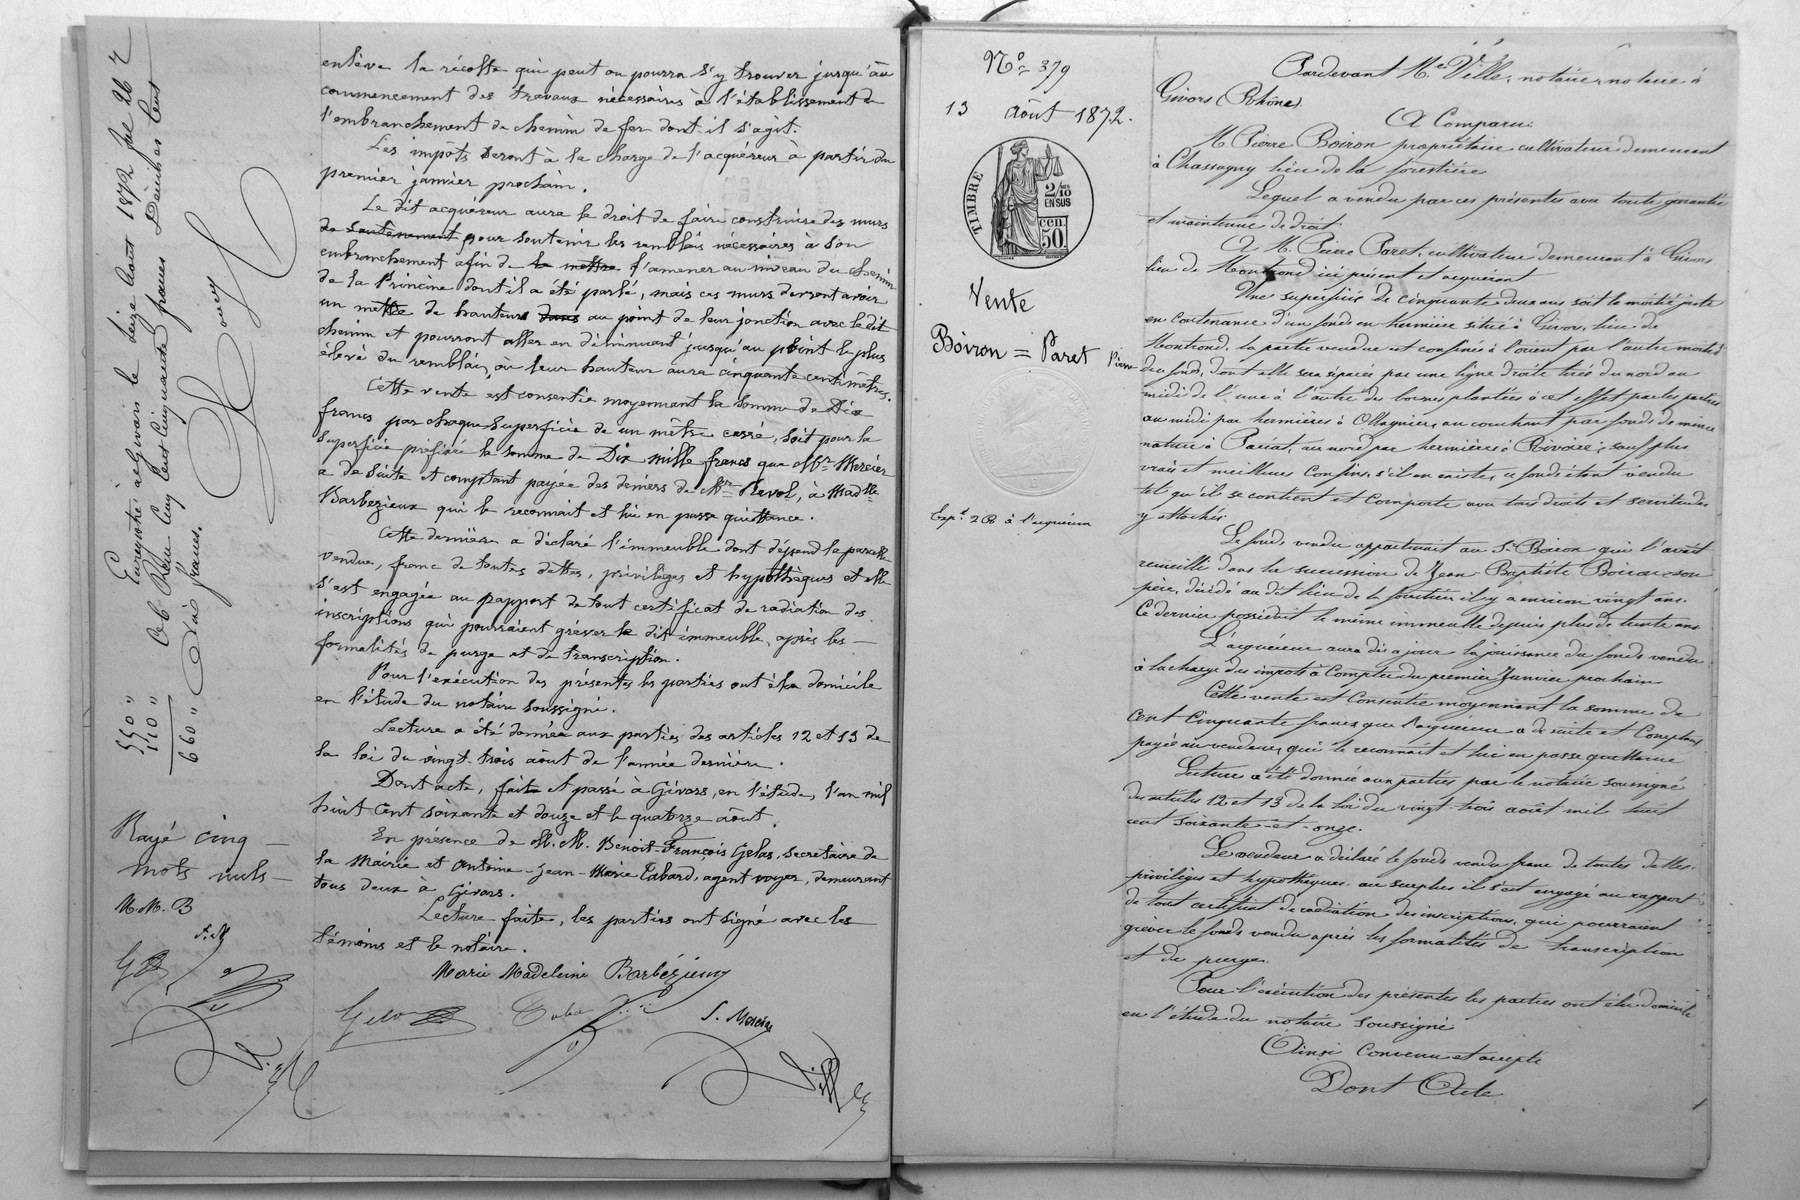 enlève la récolte qui peut ou pourra s'y trouver jusqu'au
commencement des travaux nécessaires à l'établissement de
l'embranchement de chemin de fer dont il s'agit.
Les impôts seront à la charge de l'acquéreur à partir du
premier janvier prochain.
Le dit acquéreur aura le droit de faire construire des murs
de soutenement pour soutenir les remblais nécessaires à son
embranchement afin de le mettre l'amener au niveau du chemin
de la Princine dont il a été parlé, mais ces murs devront avoir
un mètre de hauteur dans au point de leur jonction avec le dit
chemin et pourront aller en diminuant jusqu'au point le plus
élevé du remblai, où leur hauteur aura cinquante centimètres.
Cette vente est consentie moyennant la somme de Dix
francs par chaque superficie de un mètre carré, soit pour la
superficie préfixée la somme de Dix mille francs que Mr Mercier
a de suite et comptant payée des deniers de Mr Revol, à Madlle
Barbezieux qui le reconnait et lui en passe quittance.
Cette dernière a déclaré l'immeuble dont dépend la parcelle
vendue, franc de toutes dettes, privilèges et hypothèques et elle
s'est engagée au rapport de tout certificat de radiation des
inscriptions qui pourraient gréver le dit immeuble, après les
formalités de purge et de transcription.
Pour l'exécution des présentes les parties ont élu domicile
en l'étude du notaire soussigné.
Lecture a été donnée aux parties des articles 12 et 13 de
la loi du vingt-trois août de l'année dernière.
Dont acte, fait et passé à Givors, en l'étude, l'an mil
huit cent soixante et douze et le quatorze août.
En présence de M. M. Benoit-François Gelas, secrétaire de
la Mairie et Antoine-Jean-Marie Tabard, agent voyer, demeurant
tous deux à Givors.
Lecture faite, les parties ont signé avec les
témoins et le notaire.
Marie Madeleine Barbézieux
Gelas
J. Mercier
Enregistré à Givors le seize Août 1872
Reçu cinq cent cinquante francs Décimes cent
dix francs.
550 "
110 "
660 "
Rayé cinq
mots nuls
M. M. B
J. M
No 379
13 août 1872.
TIMBRE
2/10 EN SUS
50 cen.
Vente
Boiron = Paret Pierre
Expt 2 R à l'acquéreur
Pardevant Me Ville, notaire, notaire à
Givors (Rhône).
A Comparu:
M. Pierre Boiron propriétaire cultivateur demeurant
à Chassagny lieu de la forestière
Lequel a vendu par ces présentes avec toute garantie
et maintenue de droit.
A M. Pierre Paret, cultivateur demeurant à Givors
lieu de Montrond ici présent et acquérant
Une superficie de cinquante deux ares soit la moitié juste
en contenance d'un fonds en hermière situé à Givors, lieu de
Montrond. la partie vendue est confinée à l'orient par l'autre moitié
du fonds, dont elle sera séparée par une ligne droite tirée du nord au
midi de l'une à l'autre des bornes plantées à cet effet par les parties
au midi par hermières à Ollagnier, au couchant par fonds de même
nature à Pariat, au nord par hermières à Rivoire; sauf plus
vrais et meilleurs confins, s'il en existe, ce fonds étant vendu
tel qu'il se contient et comporte avec tous droits et servitudes
y attachés.
Le fonds vendu appartenait au Sr Boiron qui l'avait
recueilli dans la succession de Jean Baptiste Boiron son
père, décédé au dit lieu de la forestière il y a environ vingt ans.
Ce dernier possédait le même immeuble depuis plus de trente ans
L'acquéreur aura dès ce jour la jouissance du fonds vendu
à la charge des impôts à compter du premier Janvier prochain
Cette vente est consentie moyennant la somme de
cent cinquante francs que l'acquéreur a de suite et comptant
payée au vendeur, qui le reconnait et lui en passe quittance
Lecture a été donnée aux parties par le notaire soussigné
des articles 12 et 13 de la loi du vingt-trois août mil huit
cent soixante-et-onze.
Le vendeur a déclaré le fonds vendu franc de toutes dettes
privilèges et hypothèques. au surplus il s'est engagé au rapport
de tout certificat de radiation des inscriptions, qui pourraient
gréver le fonds vendu après les formalités de transcription
et de purge.
Pour l'exécution des présentes les parties ont élu domicile
en l'étude du notaire soussigné
Ainsi convenu et accepté
Dont Acte